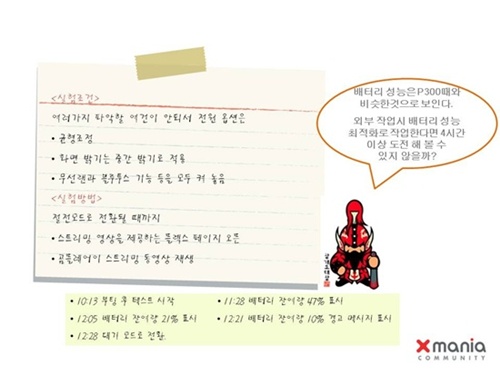 <실험조건>
여러가지 타악할 여건이 안되서 전원 옵션은
• 균형조정
• 화면 밝기는 중간 밝기로 적용
• 무선랜과 블루투스 기능 등은 모두 켜 놓음
<실험방법>
절전모드로 전환될 때까지
• 스트리밍 영상을 제공하는 플렉스 페이지 오픈
• 곰플레이어 스트리밍 동영상 재생
배터리 성능은P300때와
비슷한것으로 보인다.
외부 작업시 배터리 성능
최적화로작업한다면 4시간
이상 도전 해 볼 수
있지 않을까?
• 10:13 부팅 후 테스트 시작
• 11:28 배터리 잔여량 47% 표시
• 12:05 배터리 잔여량 21% 표시
• 12:21 배터리 잔여량 10% 경고 메시지 표시
• 12:28 대기 모드로 전환
Xmania
COMMUNITY